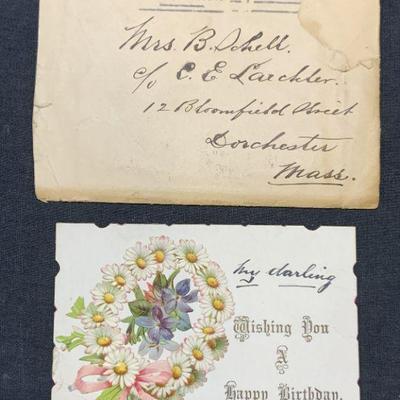 Mrs. B. Schell.
c/o C. E. Laechler.
12 Bloomfield Street
Dorchester
Mass.
my darling
Wishing You
A
Happy Birthday.